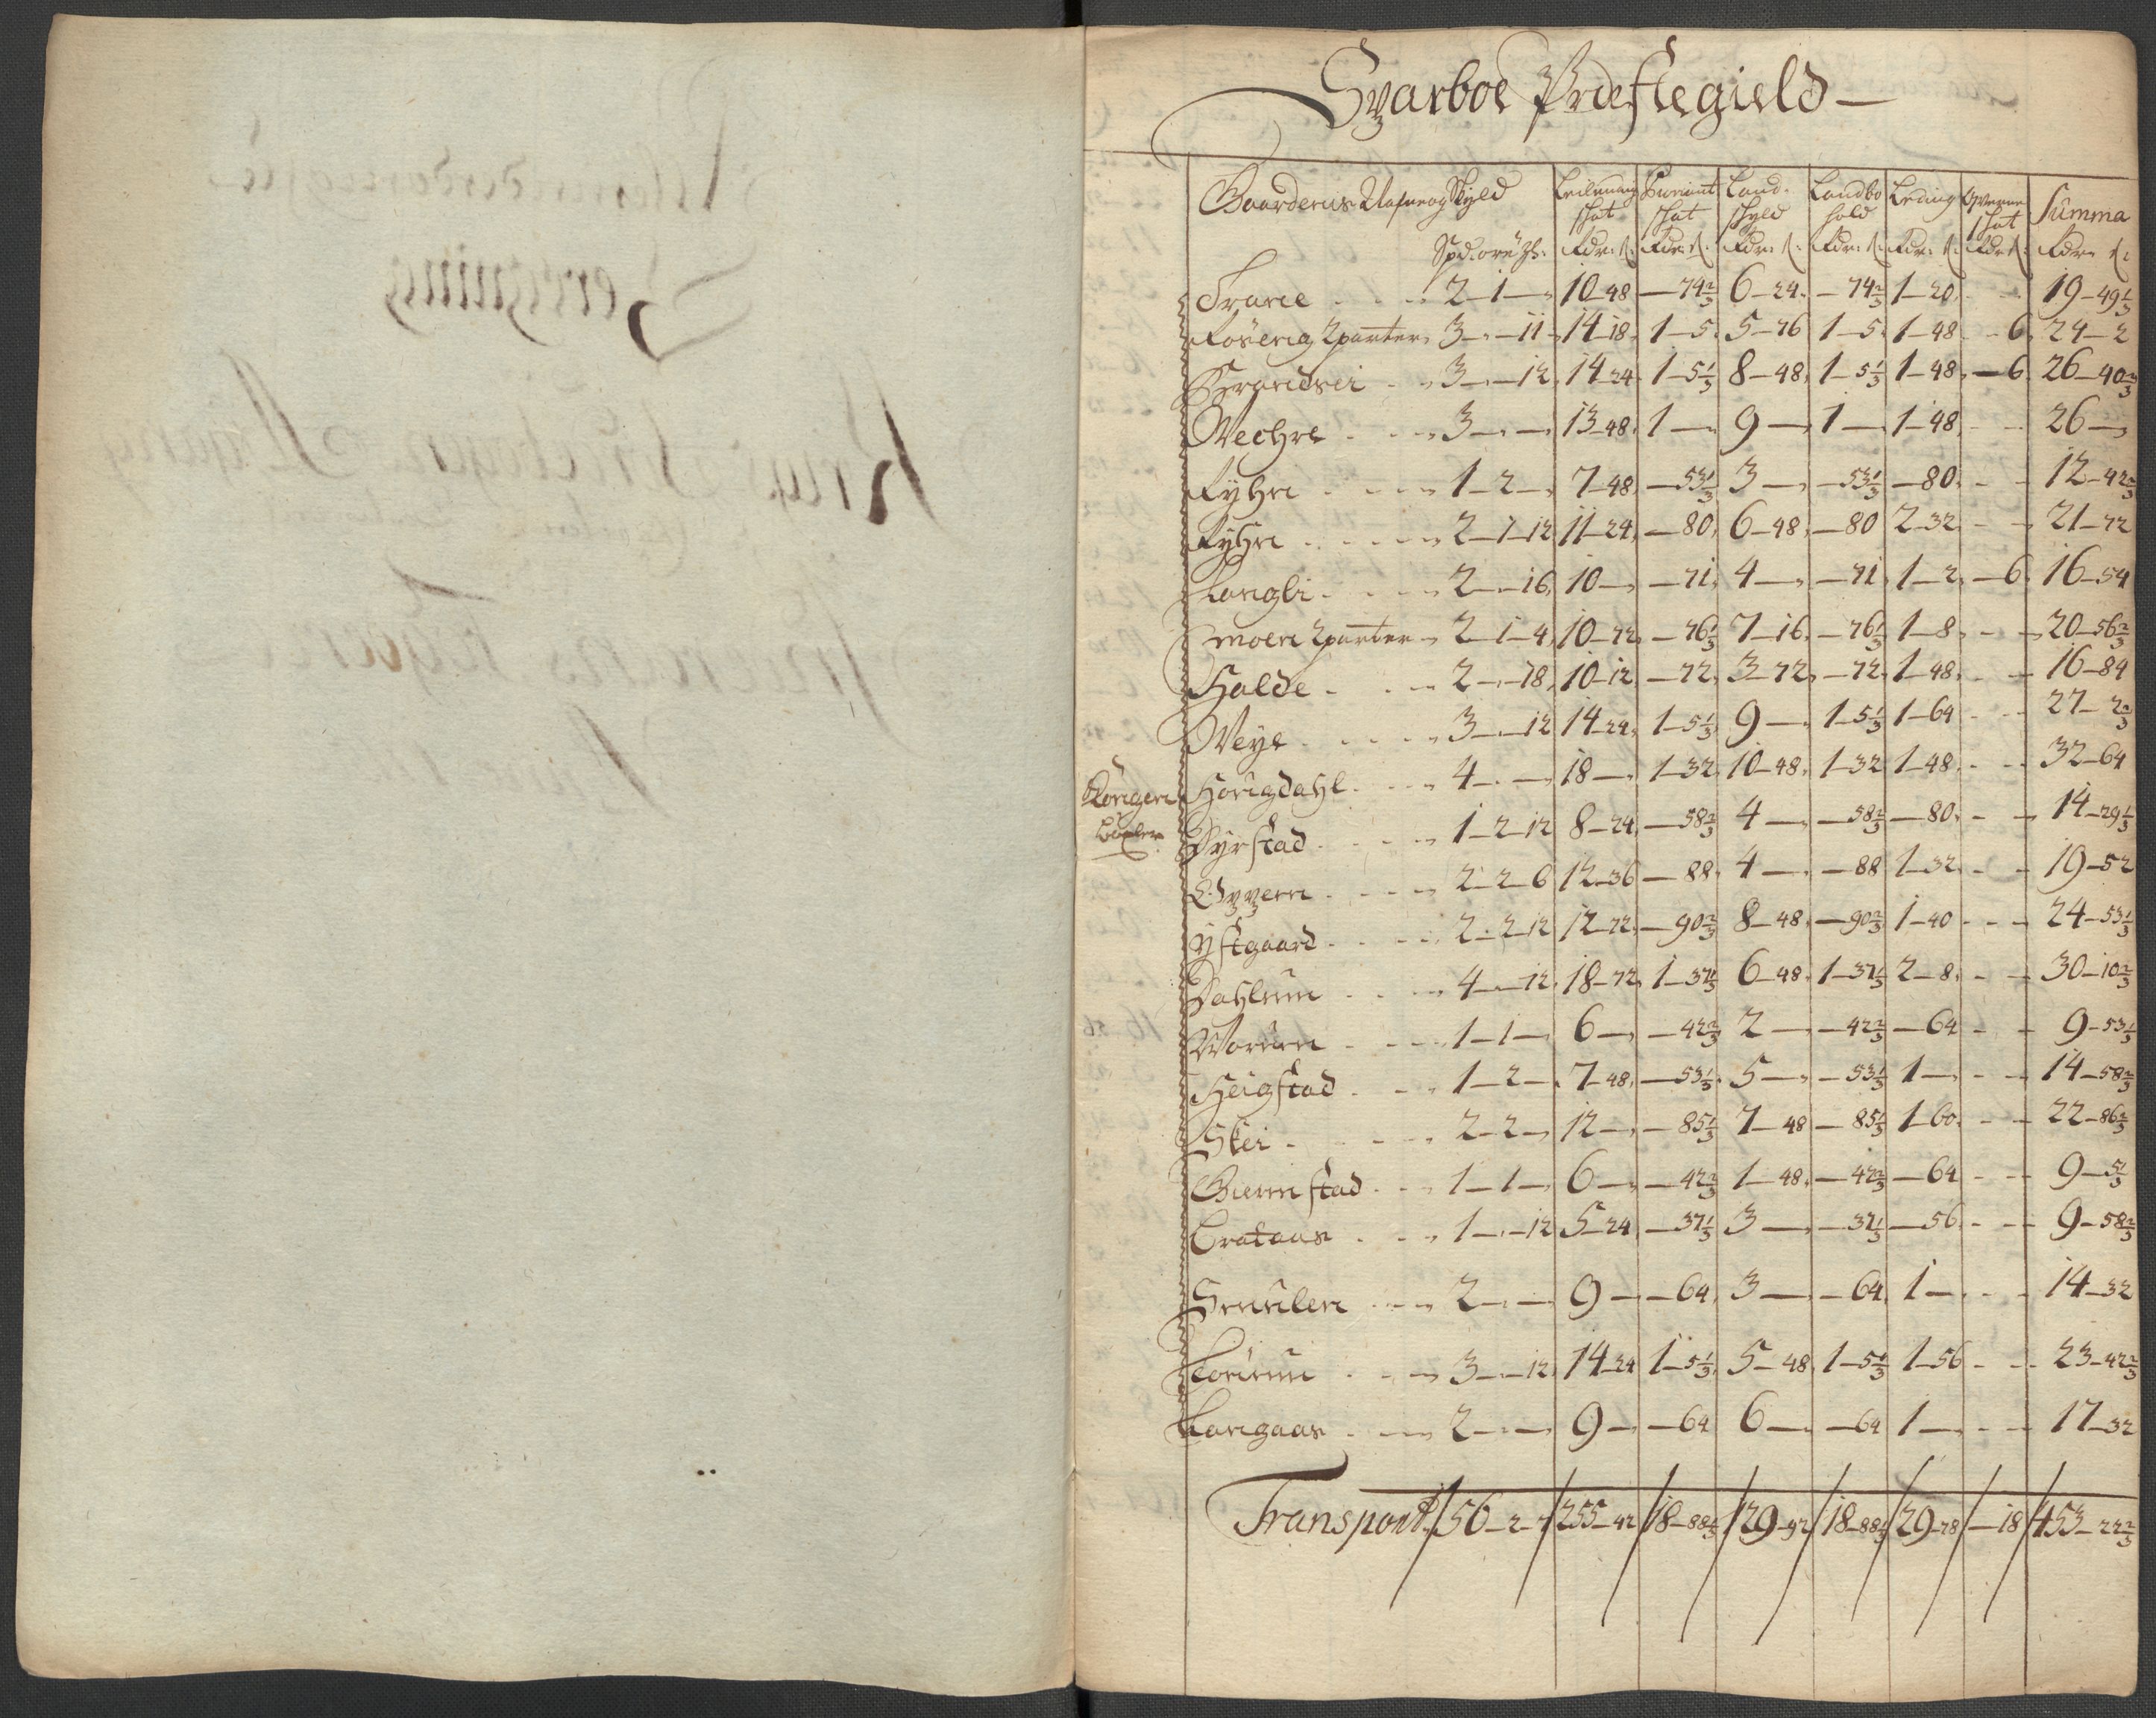 Sparboe Præstegield
Gaardernes Nafne og Skyld Leilending skat Proviant skat Land- skyld Landbo hold Leding Qverne skat Summa
Spd: ore Mk: Rdr: s: Rdr: s: Rdr: s: Rdr: s: Rdr: s: Rdr: s: Rdr: s:
Trane 2-1- 10-48 -74 2/3 6-24 -74 2/3 1-20 19-49 1/3
Røseng 2 parter 3-"-11 14-18 1-5 5-76 1-5 1-48 -6 24-2
Grandsei 3-"-12 14-24 1-5 1/3 8-48 1-5 1/3 1-48 -6 26-40 2/3
Wechre 3-"- 13-48 1- 9- 1- 1-48 26-
Ryhn 1-2- 7-48 -53 1/3 3- -53 1/3 -80 12-42 2/3
Ryhn 2-1-12 11-24 -80 6-48 -80 2-32 21-72
Langli 2-"-16 10- -71 4- -71 1-2 -6 16-54
moen 2 parter 2-1-4 10-72 -76 1/3 7-16 -76 1/3 1-8 20-56 2/3
Halde 2-"-18 10-12 -72 3-72 -72 1-48 16-84
Weye 3-"-12 14-24 1-5 1/3 9- 1-5 1/3 1-64 27-2 2/3
Kongen Høugdahl 4-"- 18- 1-32 10-48 1-32 1-48 32-64
bøxler Dyrstad 1-2-12 8-24 -58 2/3 4- -58 2/3 -80 14-29 1/3
2-2-6 12-36 -88 4- -88 1-32 19-52
ystgaard 2-2-12 12-72 -90 2/3 8-48 -90 2/3 1-40 24-53 1/3
Dahlum 4-"-12 18-72 1-37 1/3 6-48 1-37 1/3 2-8 30-10 2/3
1-1- 6- -42 2/3 2- -42 2/3 -64 9-53 1/3
Heigstad 1-2- 7-48 -53 1/3 5- -53 1/3 1- 14-58 2/3
Skei 2-2- 12- -85 1/3 7-48 -85 1/3 1-60 22-86 2/3
Giermstad 1-1- 6- -42 2/3 1-48 -42 2/3 -64 9-5 1/3
Brataas 1-"-12 5-24 -37 1/3 3- -37 1/3 -56 9-58 2/3
2-"- 9- -64 3- -64 1- 14-32
3-"-12 14-24 1-5 1/3 5-48 1-5 1/3 1-56 23-42 2/3
Langaas 2-"- 9- -64 6- -64 1- 17-32
Transport 56-2-7 255-42 18-88 1/3 129-92 18-88 1/3 29-78 -18 453-22 2/3